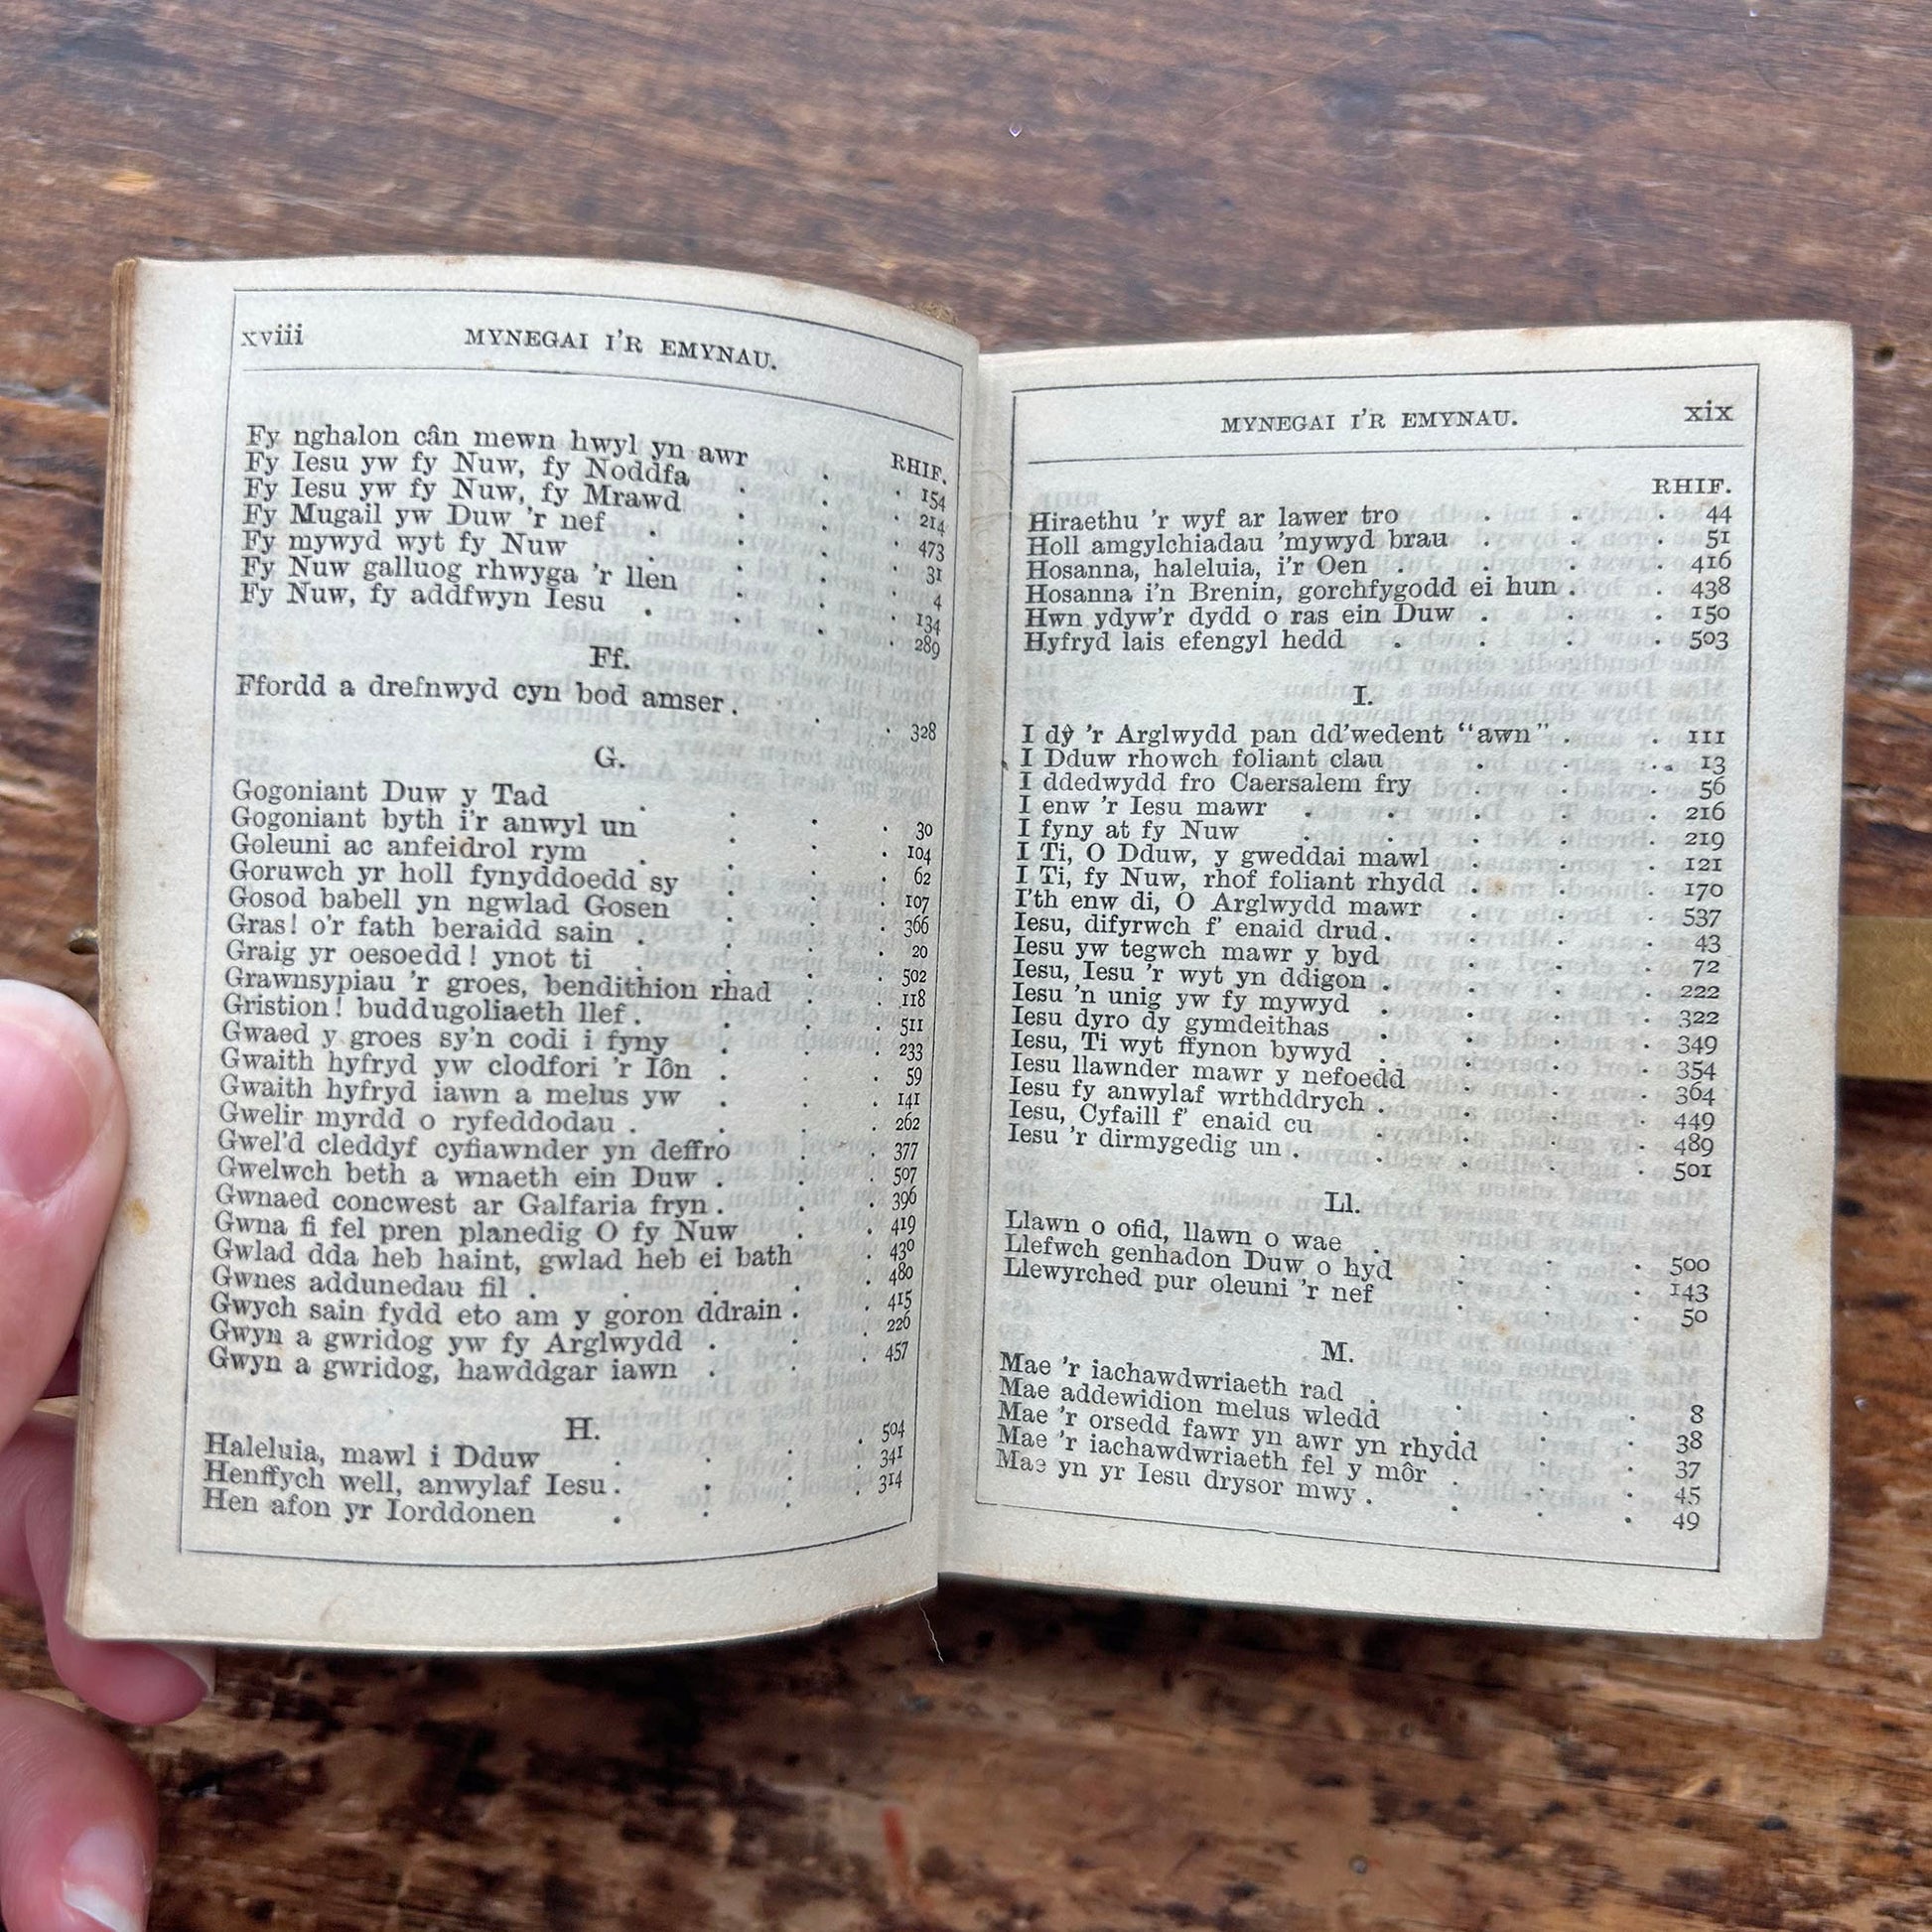 xviii MYNEGAI I'R EMYNAU.
RHIF.
Fy nghalon cân mewn hwyl yn awr . . 154
Fy Iesu yw fy Nuw, fy Noddfa . . . 214
Fy Iesu yw fy Nuw, fy Mrawd . . . 473
Fy Mugail yw Duw 'r nef . . . . 31
Fy mywyd wyt fy Nuw . . . 4
Fy Nuw galluog rhwyga 'r llen . . . 134
Fy Nuw, fy addfwyn Iesu . . . . 289
Ff.
Ffordd a drefnwyd cyn bod amser . . . 328
G.
Gogoniant Duw y Tad . . . . 30
Gogoniant byth i'r anwyl un . . . 104
Goleuni ac anfeidrol rym . . . . 62
Goruwch yr holl fynyddoedd sy . . . 107
Gosod babell yn ngwlad Gosen . . . 366
Gras! o'r fath beraidd sain . . . . 20
Graig yr oesoedd! ynot ti . . . . 502
Grawnsypiau 'r groes, bendithion rhad . . 118
Gristion! buddugoliaeth llef . . . . 511
Gwaed y groes sy'n codi i fyny . . . 233
Gwaith hyfryd yw clodfori 'r Iôn . . . 59
Gwaith hyfryd iawn a melus yw . . . 141
Gwelir myrdd o ryfeddodau . . . . 262
Gwel'd cleddyf cyfiawnder yn deffro . . 377
Gwelwch beth a wnaeth ein Duw . . . 507
Gwnaed concwest ar Galfaria fryn . . . 396
Gwna fi fel pren planedig O fy Nuw . . 419
Gwlad dda heb haint, gwlad heb ei bath . 430
Gwnes addunedau fil . . . . 480
Gwych sain fydd eto am y goron ddrain . . 415
Gwyn a gwridog yw fy Arglwydd . . . 226
Gwyn a gwridog, hawddgar iawn . . . 457
H.
Haleluia, mawl i Dduw . . . . 504
Henffych well, anwylaf Iesu . . . . 341
Hen afon yr Iorddonen . . . . 314
MYNEGAI I'R EMYNAU. xix
RHIF.
Hiraethu 'r wyf ar lawer tro . . . 44
Holl amgylchiadau 'mywyd brau . . . 51
Hosanna, haleluia, i'r Oen . . . . 416
Hosanna i'n Brenin, gorchfygodd ei hun . . 438
Hwn ydyw'r dydd o ras ein Duw . . . 150
Hyfryd lais efengyl hedd . . . . 503
I.
I dŷ 'r Arglwydd pan dd'wedent "awn" . . 111
I Dduw rhowch foliant clau . . . 13
I ddedwydd fro Caersalem fry . . . 56
I enw 'r Iesu mawr . . . . . 216
I fyny at fy Nuw . . . . . 219
I Ti, O Dduw, y gweddai mawl . . . 121
I Ti, fy Nuw, rhof foliant rhydd . . . 170
I'th enw di, O Arglwydd mawr . . . 537
Iesu, difyrwch f' enaid drud . . . . 43
Iesu yw tegwch mawr y byd . . . 72
Iesu, Iesu 'r wyt yn ddigon . . . . 222
Iesu 'n unig yw fy mywyd . . . . 322
Iesu dyro dy gymdeithas . . . . 349
Iesu, Ti wyt ffynon bywyd . . . . 354
Iesu llawnder mawr y nefoedd . . . 364
Iesu fy anwylaf wrthddrych . . . . 449
Iesu, Cyfaill f' enaid cu . . . . 489
Iesu 'r dirmygedig un . . . . 501
Ll.
Llawn o ofid, llawn o wae . . . . 500
Llefwch genhadon Duw o hyd . . . 143
Llewyrched pur oleuni 'r nef . . . 50
M.
Mae 'r iachawdwriaeth rad . . . . 8
Mae addewidion melus wledd . . . 38
Mae 'r orsedd fawr yn awr yn rhydd . . 37
Mae 'r iachawdwriaeth fel y môr . . . 45
Mae yn yr Iesu drysor mwy . . . . 49